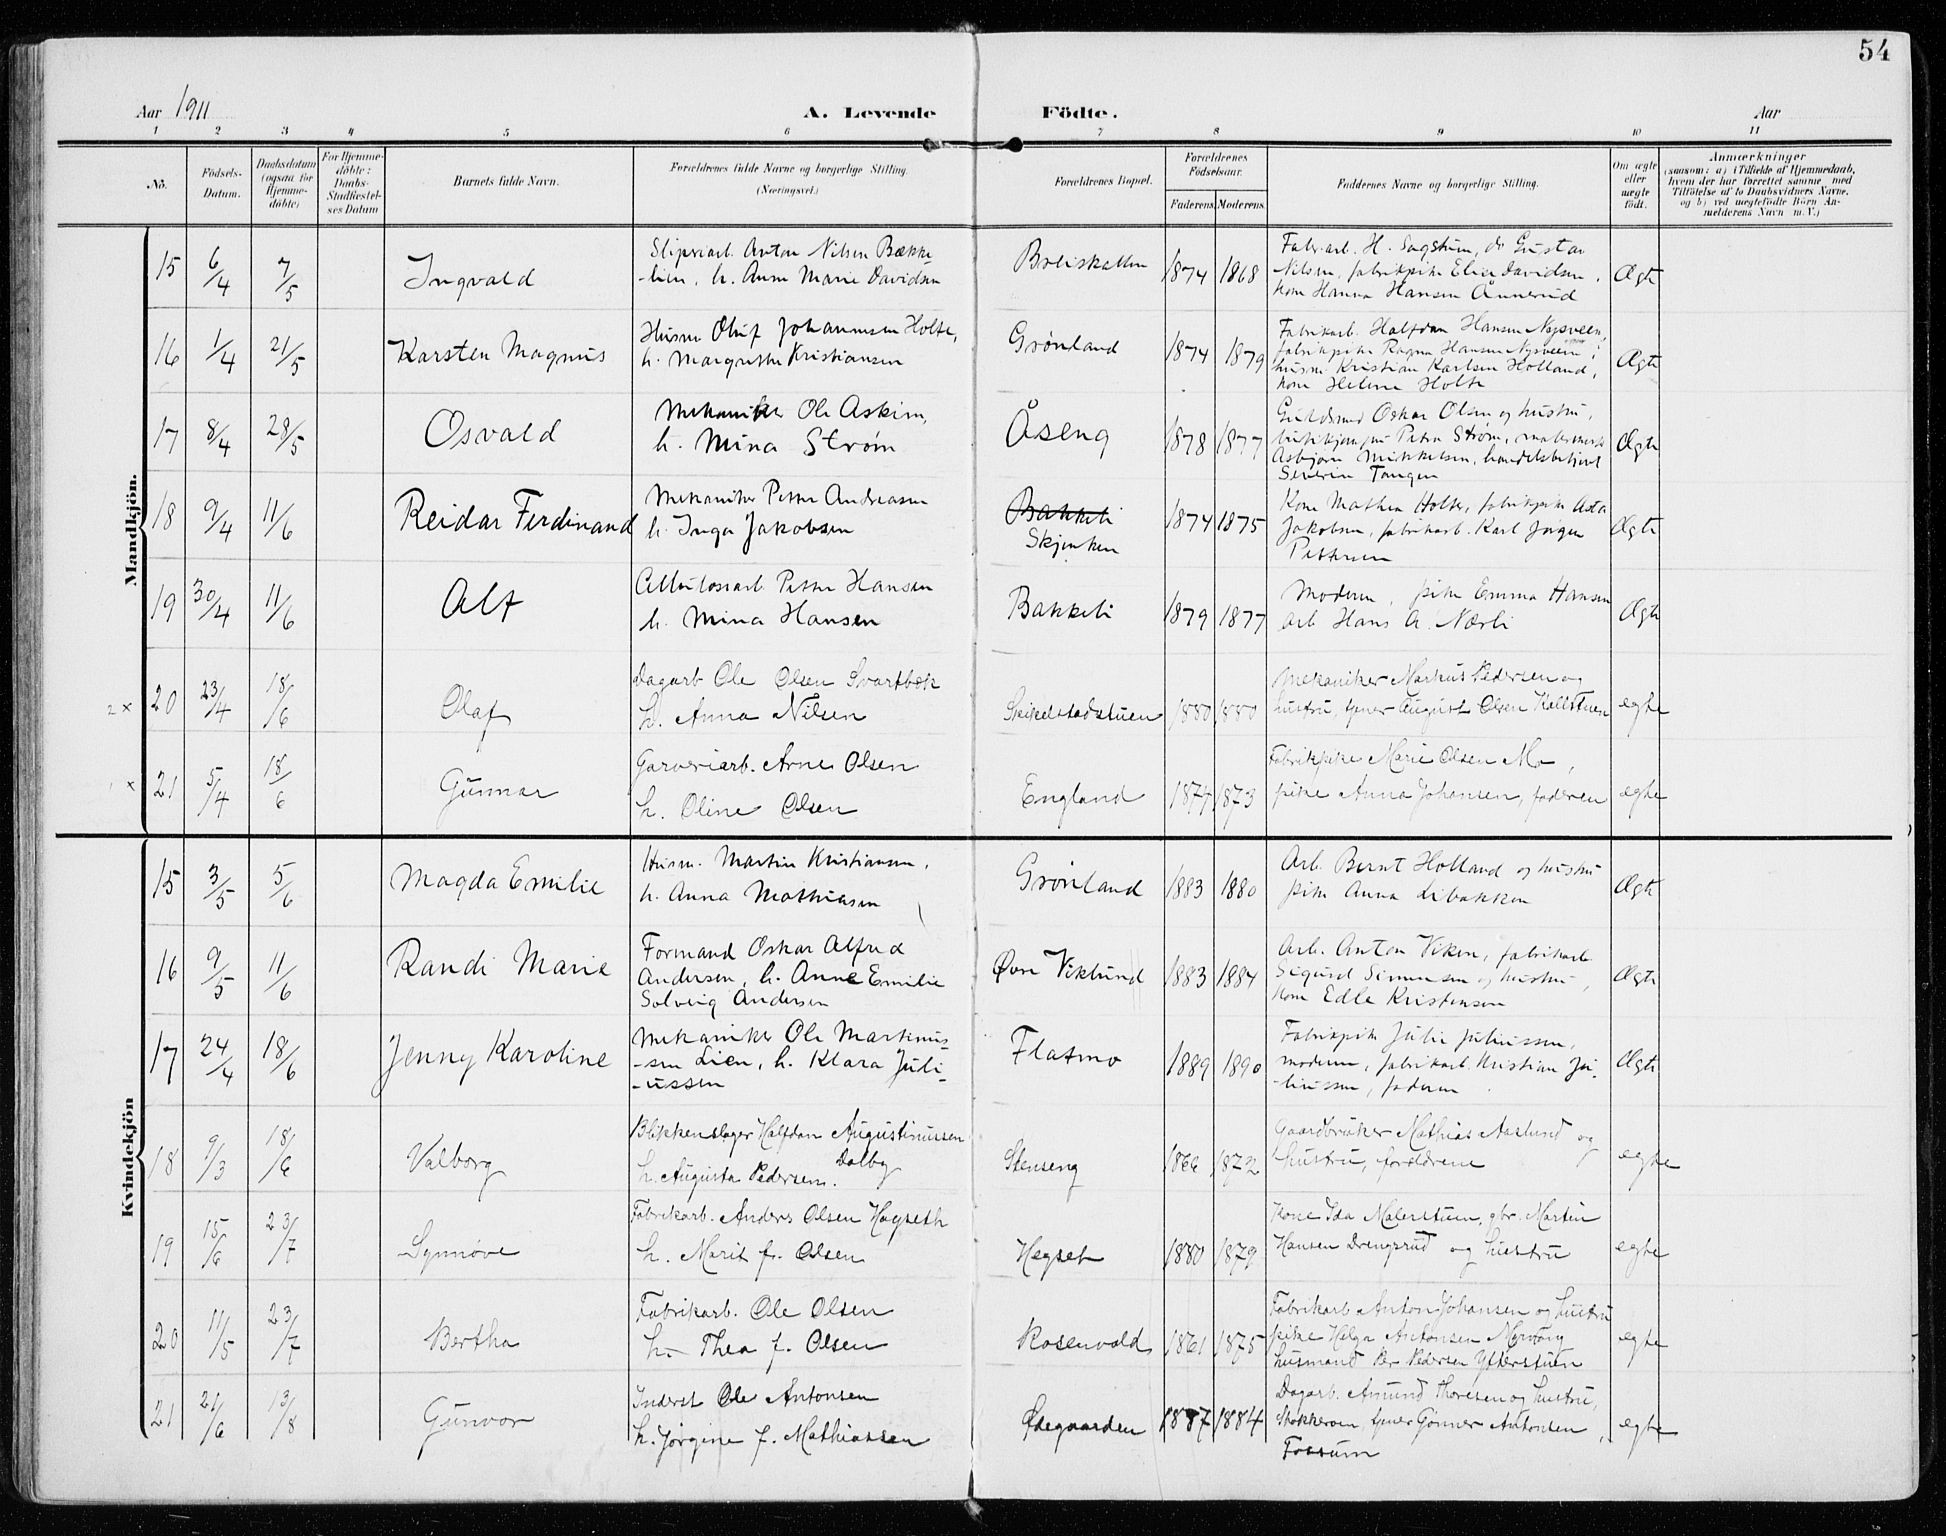 54
Aar 1911 A. Levende Födte. Aar
1 2 3 4 5 6 7 8 9 10 11
Nö. Födsels-Datum. Daabsdatum (ogsaa för Hjemme-döbte) For Hjemme-döbte: Daabs-Stadfæstel-ses Datum Barnets fulde Navn. Forældrenes fulde Navne og borgerlige Stilling. (Næringsvei.) Forældrenes Bopæl. Forældrenes Födselsaar. Faderens Moderens. Faddernes Navne og borgerlige Stilling. Om ægte eller uægte födt. Anmærkninger (saasom: a) i Tilfælde af Hjemmedaab, hvem der har forrettet samme med Tilföielse af to Daabsvidners Navne, og b) ved uægtefödte Börn An-melderens Navn m. V.)
Mandkjön.
15 6/4 7/5 Ingvald Sliperiarb. Anton Nilsen Bække
-lien, h. Anne Marie Davidsen 1874 1868 Fabr.arb. H. Sagstuen, do Gustav
Nilsen, fabrikpike Elise Davidsen,
kone Hanna Hansen Ånnerud Ægte
16 1/4 21/5 Karsten Magnus Husm Oluf Johannesen Holte,
h. Margrethe Kristiansen Grönland 1874 1879 Fabrikarb. Halfdan Hansen Nysveen,
fabrikpike Ragna Hansen Nysveen,
husm Kristian Karlsen Holland,
kone Helene Holte Ægte
17 8/4 28/5 Osvald Mekaniker Ole Askim,
h. Mina Strøm Åseng 1878 1877 Guldsmed Oskar Olsen og hustru,
Petra Strøm,
Asbjørn Mikkelsen, handelsbetjent
Severin Tangen Ægte
18 9/4 11/6 Reidar Ferdinand Mekaniker Petter Andreasen
h. Inga Jakobsen Bakkeli
Skjenken 1874 1875 Kone Mathea Holter, fabrikpike Asta
Jakobsen, fabrikarb. Karl Jörgen
Pettersen Ægte
19 30/4 11/6 Alf Cellulosearb Petter Hansen
h. Mina Hansen Bakkeli 1879 1877 Moderen, pike Emma Hansen
arb Hans A. Nærli Ægte
2 x 20 23/4 18/6 Olaf Dagarb Ole Olsen Svartbæk
h. Anna Nilsen Skikelstadstuen 1880 1880 Mekaniker Markus Pedersen og
hustru, tjener August Olsen Kallstuen egte
1 x 21 5/4 18/6 Gunnar Garveriarb. Arne Olsen
h. Oline Olsen England 1877 1873 Fabrikpike Marie Olsen Mo,
pike Anna Johansen, faderen egte
Kvindekjön
15 3/5 5/6 Magda Emilie Husm. Martin Kristiansen,
h. Anna Mathiasen Grönland 1883 1880 Arb. Bernt Holland og hustru
pike Anna Libakken Ægte
16 9/5 11/6 Randi Marie Formand Oskar Alfred
Andersen, h. Anne Emilie
Solveig Andersen Øvre Viklund 1883 1884 Arb. Anton Viken, fabrikarb
Sigurd Simensen og hustru,
kone Edle Kristensen Ægte
17 24/4 18/6 Jenny Karoline Mekaniker Ole Martinus-
-sen Lien, h. Klara Juli-
-ussen Flatmo 1889 1890 Fabrikpike Julie Juliussen,
moderen, fabrikarb. Kristian Ju-
-liussen, faderen Ægte
18 9/3 18/6 Valborg Blikkenslager Halfdan Augustinussen
Dalby
h. Augusta Pedersen. Stenseng 1866 1872 Gaardbruker Mathias Aaslund og
hustru, foreldrene egte
19 15/6 23/7 Synnøve Fabrikarb. Anders Olsen Hagseth
h. Marit f. Olsen Hegset 1880 1879 Kone Ida Malerstuen, gbr. Martin
Hansen Drengsrud og hustru egte
20 11/5 23/7 Bertha Fabrikarb. Ole Olsen
h. Thea f. Olsen Rosenvold 1861 1875 Fabrikarb Anton Johansen og hustru
pike Helga Antonsen
husmand Per Pedersen Ytterstuen egte
21 21/6 13/8 Gunvor Inderst Ole Antonsen
h. Jörgine f. Mathiassen Ødegaarden 1887 1884 Dagarb. Amund Thoresen og hustru,
Stokkeroen, tjener Gunner Antonsen,
Fossum egte